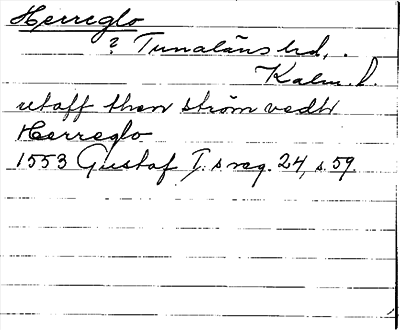 Herreglo
? Tunaläns hd,.
Kalm. l.
utaff then ström vedh
Herreglo
1553 Gustaf I:s reg. 24, s. 59.